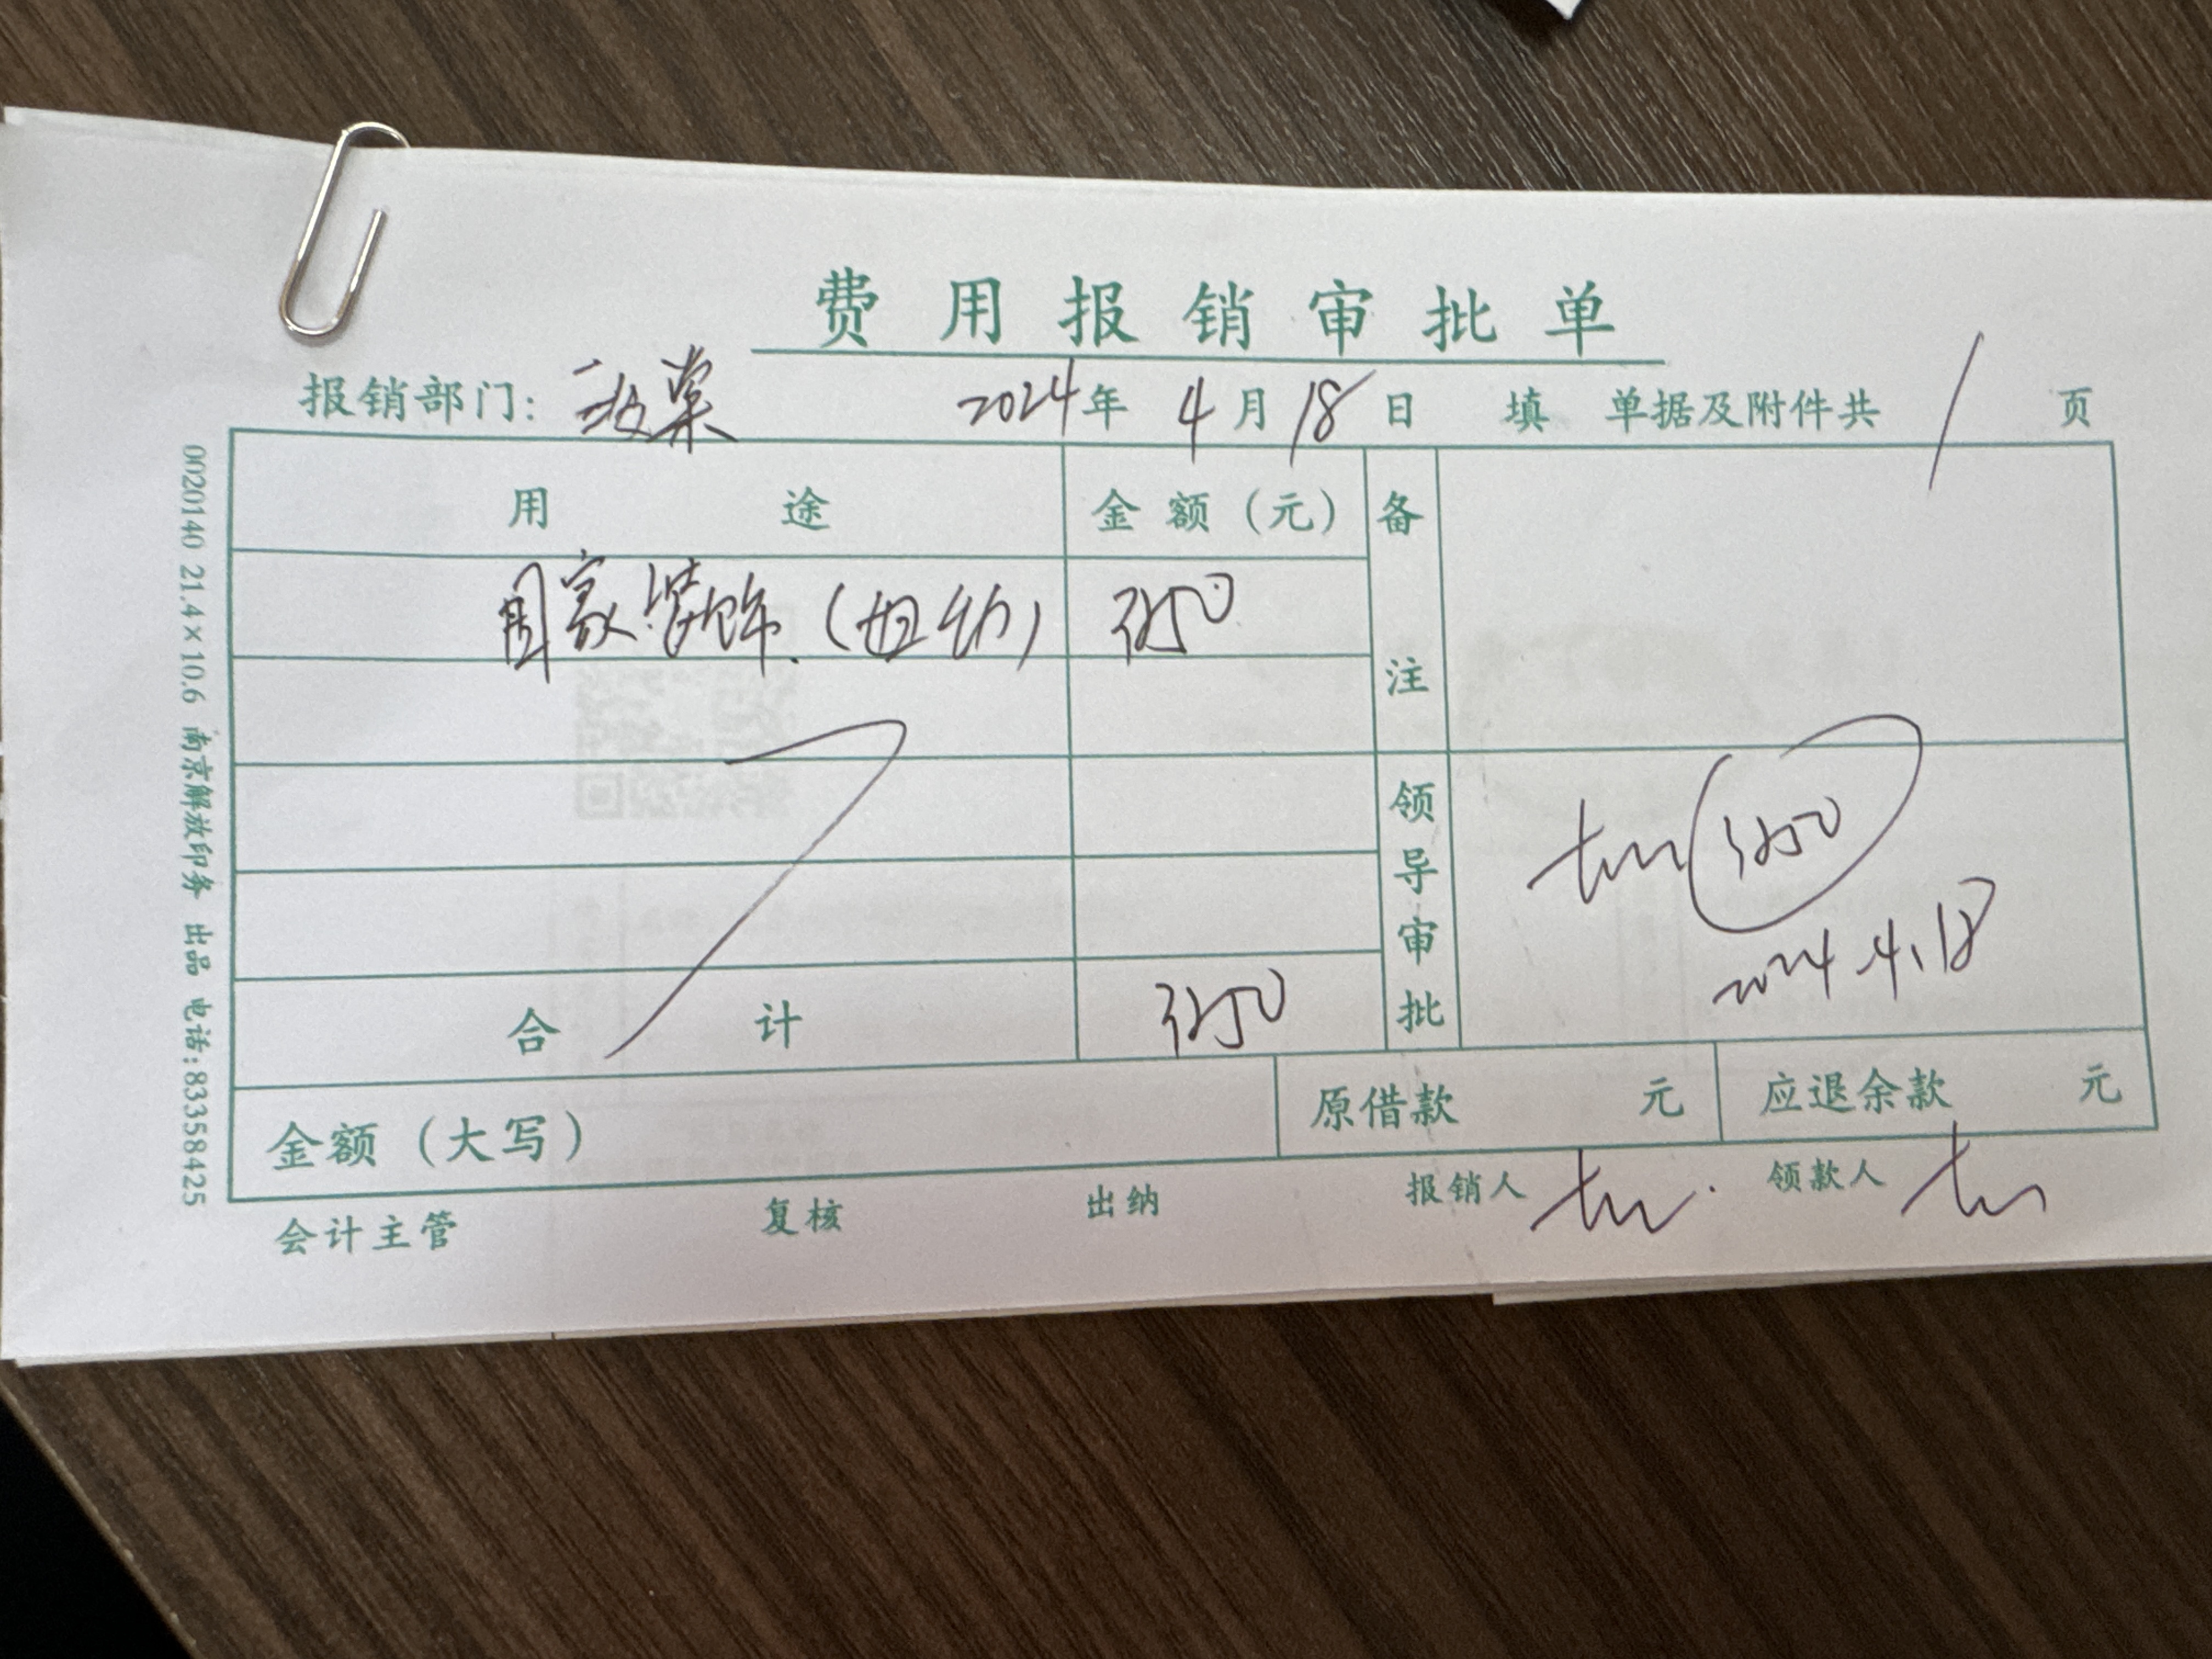 费用报销审批单
报销部门: 2024年 4月 18日 填 单据及附件共 1 页
用途 金额(元) 备注
周家装饰.(母幼) 3250
合计 3250
领导审批 3250
2024.4.18
金额(大写) 原借款 元 应退余款 元
会计主管 复核 出纳 报销人 领款人
0020140 21.4×10.6 南京解放印务 出品 电话:83358425